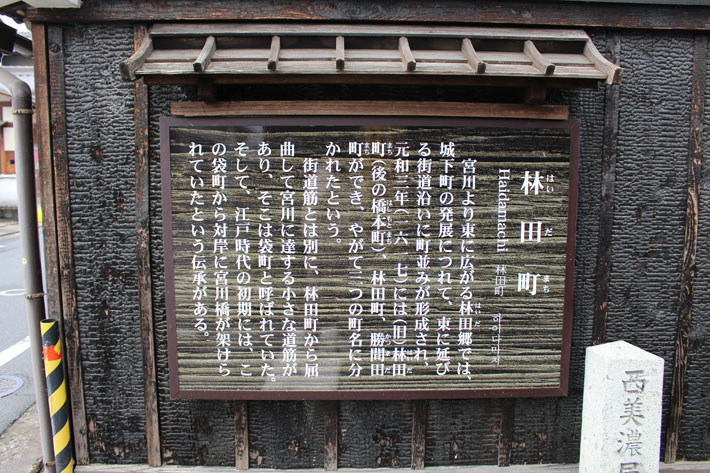 林田町
はいだまち
Haidamachi
林田町
하이다마치
宮川より東に広がる林田郷では、
はいだ
城下町の発展につれて、東に延び
る街道沿いに町並みが形成され、
元和三年(一六一七)には(旧)林田
はいだ
町(後の橋本町)、林田町、勝間田
まち
はしもとまち
かつまだ
町ができ、やがて二つの町名に分
まち
かれたという。
街道筋とは別に、林田町から屈
曲して宮川に達する小さな道筋が
あり、そこは袋町と呼ばれていた。
そして、江戸時代の初期には、こ
の袋町から対岸に宮川橋が架けら
れていたという伝承がある。
西美濃